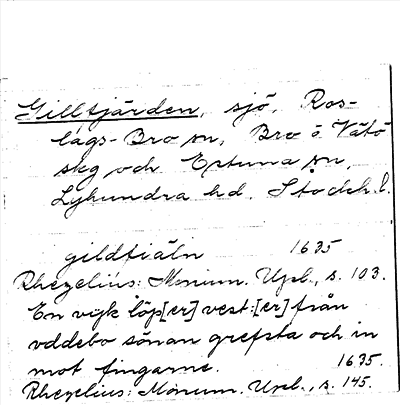 Gilltjärden, sjö, Ros-
lags-Bro sn, Bro o Vätö
skg och Estuna sn,
Lyhundra hd. Stockh. l.
gildtiäln 1635
Rhezelius: Monum. Upl., s. 103.
En vijk löp[er] vest:[er] från
vddebo sönan grefsta och in
mot fingarne. 1635.
Rhezelius: Monum. Upl., s. 145.